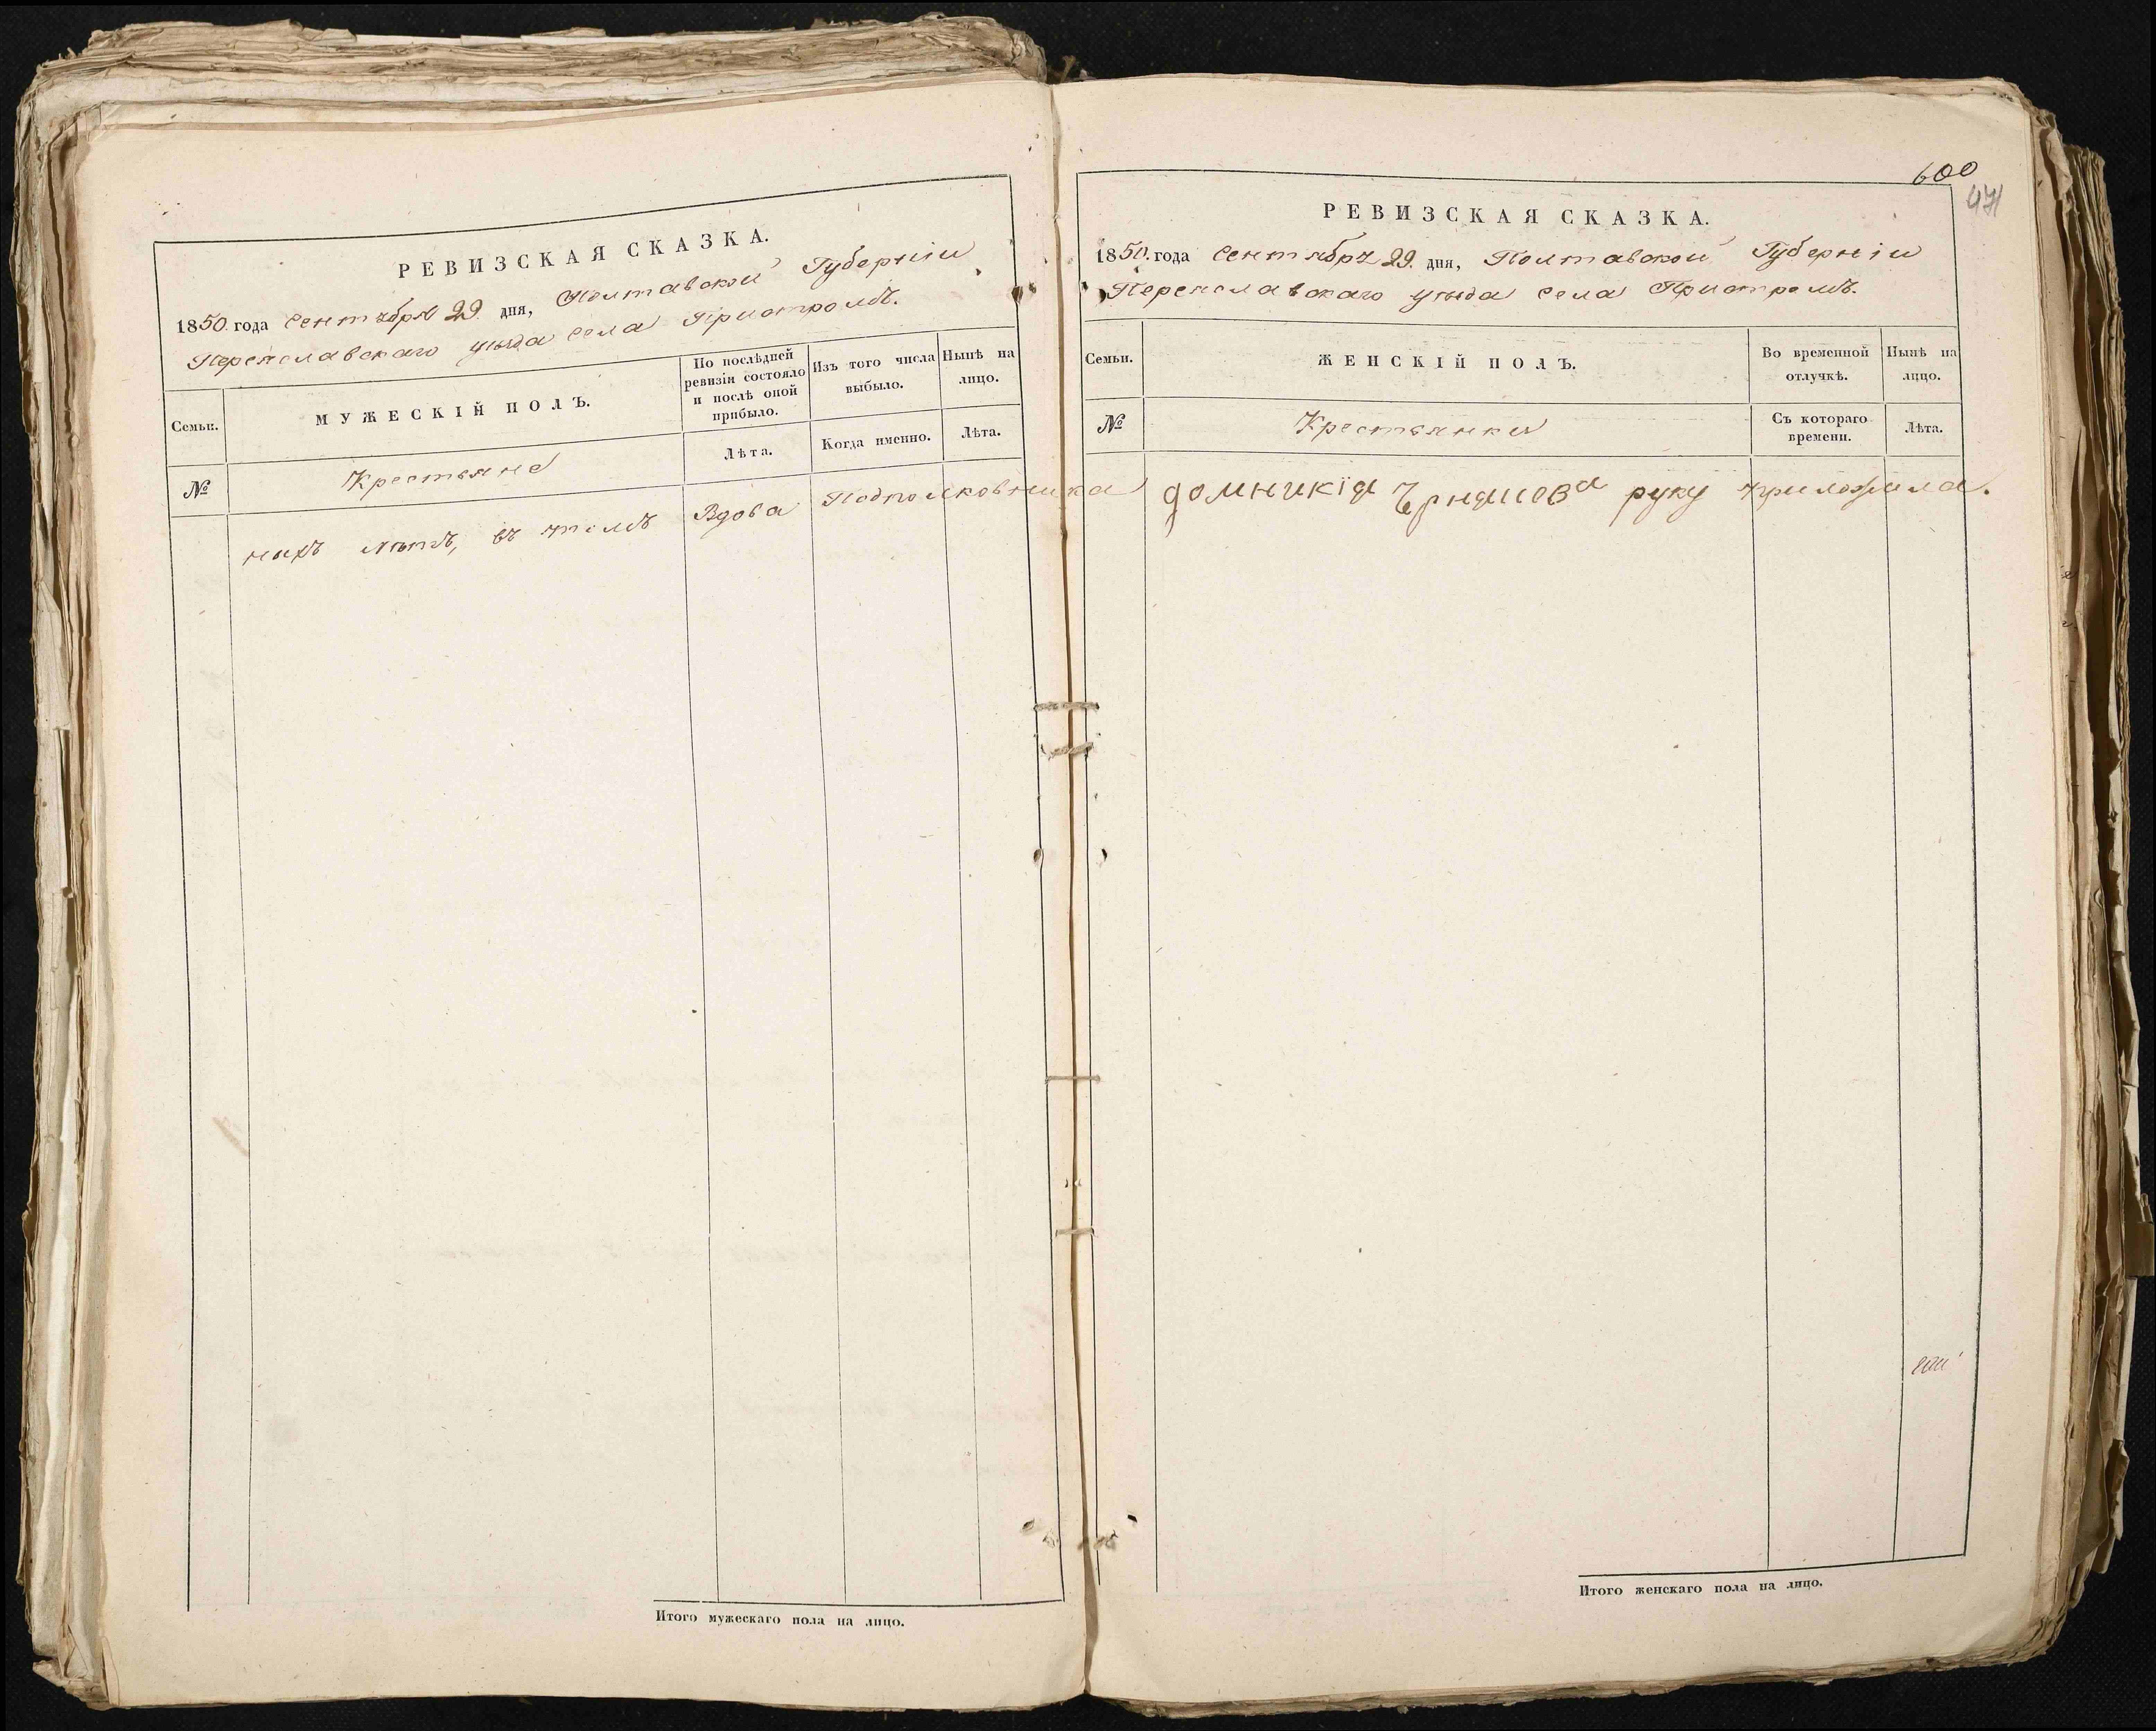 РЕВИЗСКАЯ СКАЗКА.
1850. года Сентября 29. дня, Полтавской Губерніи
Переяславскаго уѣзда села Пристромъ.
Семьи.
МУЖЕСКІЙ ПОЛЪ.
По послѣдней ревизіи состояло и послѣ оной прибыло.
Изъ того числа выбыло.
Нынѣ на лицо.
№
Крестьяне
Лѣта.
Когда именно.
Лѣта.
нихъ лѣтъ, въ томъ Вдова Подполковника
Итого мужескаго пола на лицо.
600
471
РЕВИЗСКАЯ СКАЗКА.
1850. года Сентября 29. дня, Полтавской Губерніи
Переяславскаго уѣзда села Пристромъ.
Семьи.
ЖЕНСКІЙ ПОЛЪ.
Во временной отлучкѣ.
Нынѣ на лицо.
№
Крестьянки
Съ котораго времени.
Лѣта.
домникія руку приложила.
Итого женскаго пола на лицо.